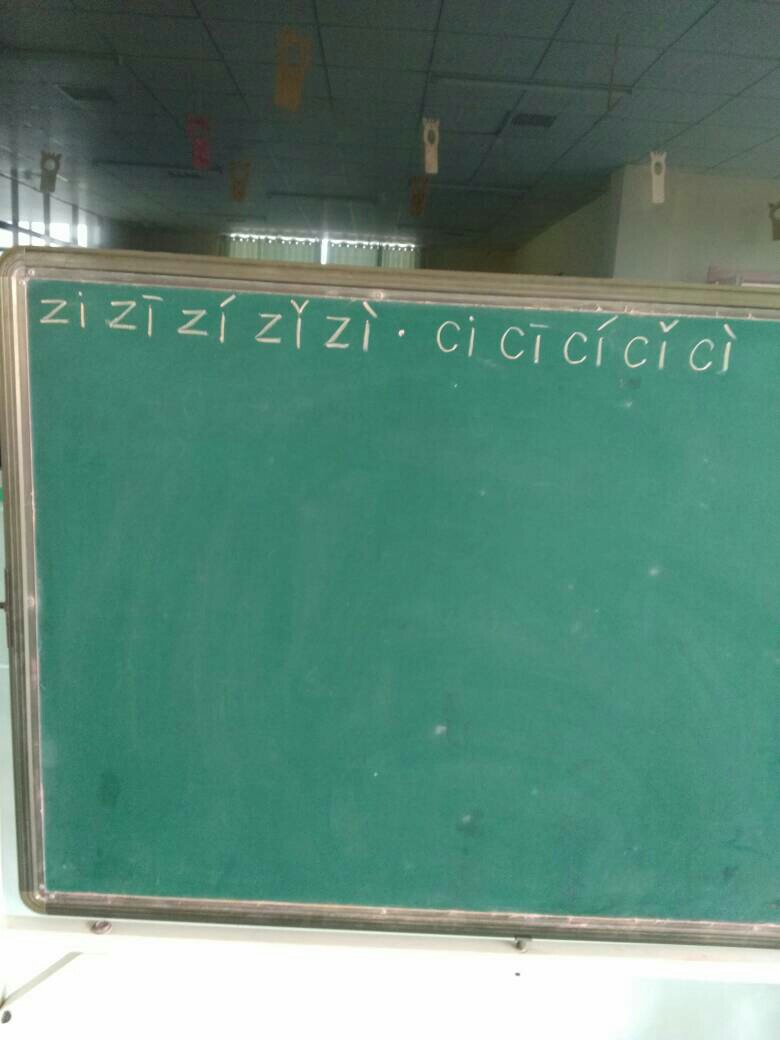 zi zī zí zǐ zì · ci cī cí cǐ cì